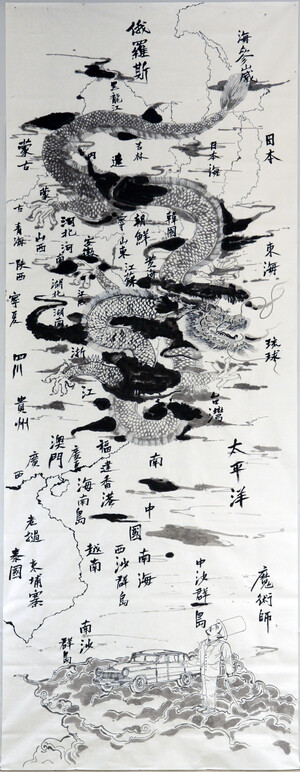 俄羅斯
海參崴
黑龍江
吉林
遼
內
蒙古
日本海
日本
蒙
古
河北
河南
山西
山東
朝鮮
韓國
安徽
江蘇
東海
青海
陝西
寧夏
湖北
湖南
浙
江
琉球
四川
貴州
台灣
澳門
福建
香港
廣
西
廣
海南島
南
中
國
太平洋
老撾
泰國
柬埔寨
越南
西沙群島
南海
中沙群島
魔術師
南沙
群島